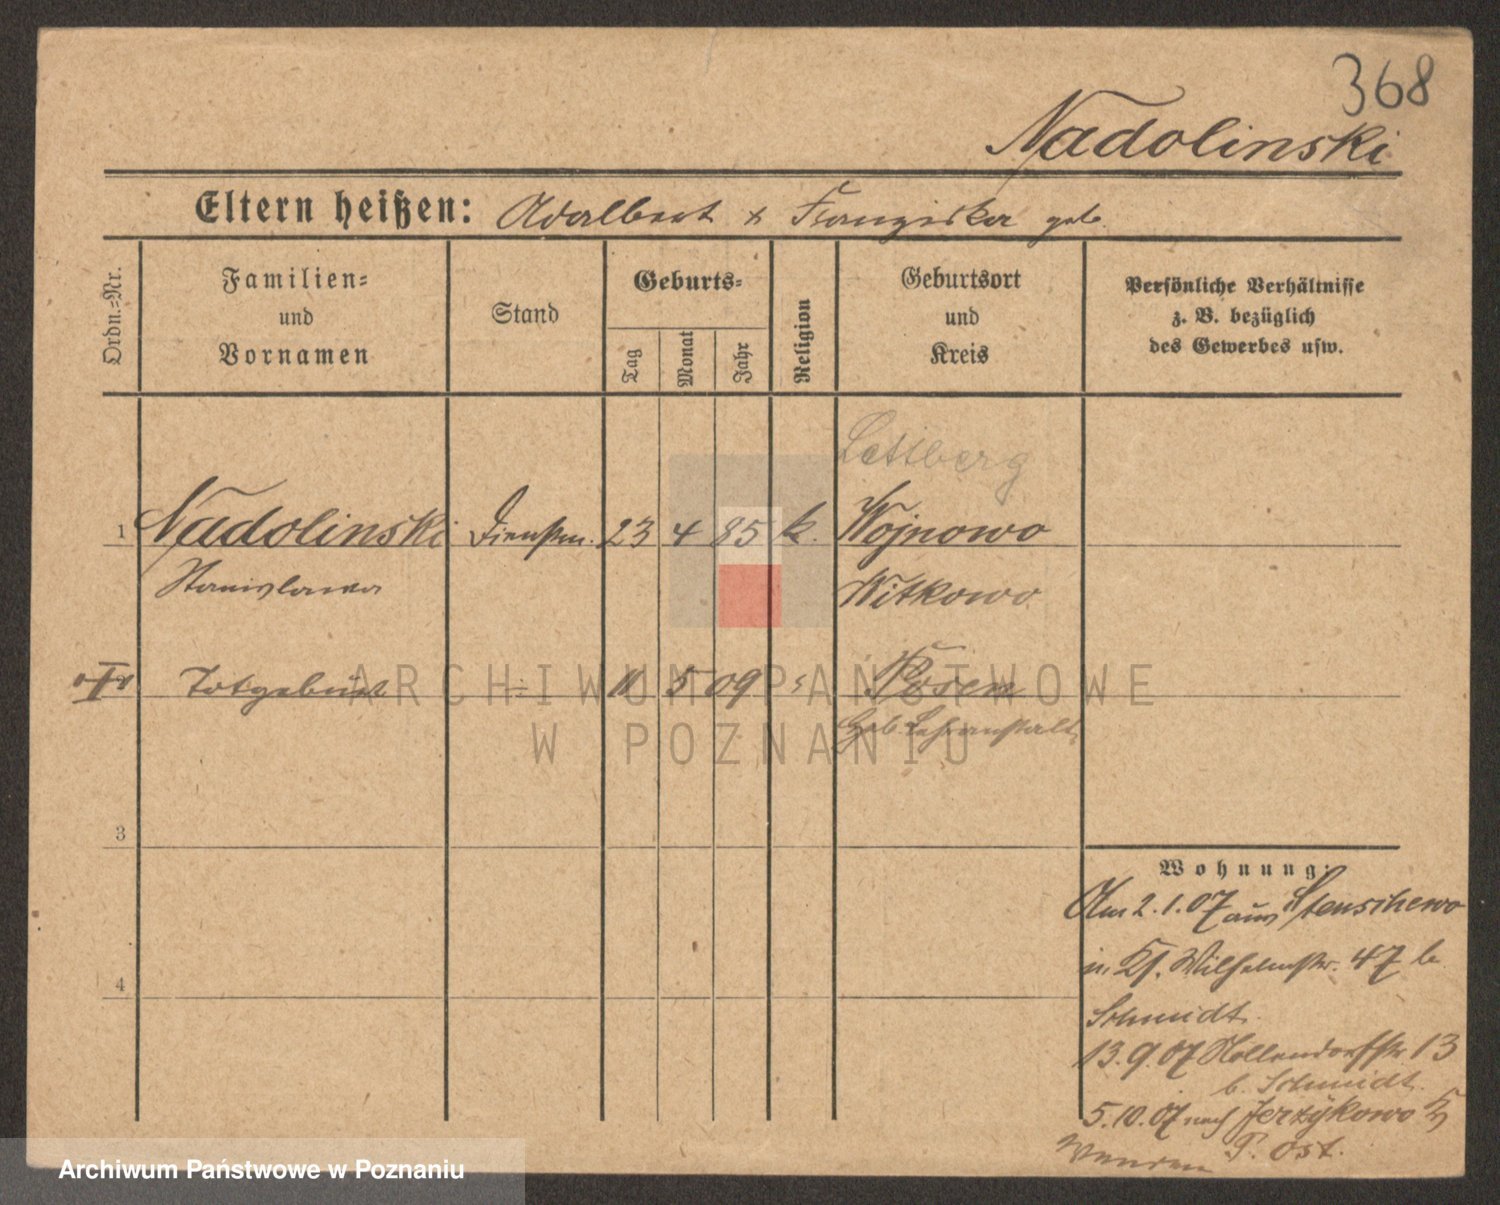 368
Nadolinski
Eltern heißen: Adalbert & Franziska geb.
Ordn.=Nr.
Familien=
und
Vornamen
Stand
Geburts=
Tag
Monat
Jahr
Religion
Geburtsort
und
Kreis
Persönliche Verhältnisse
z. B. bezüglich
des Gewerbes usw.
1 Nadolinski Dienstm. 23 4 85 k. Wojnowo
Stanislawa Witkowo
Totgeburt 11 5 09 Posen
Geb. Lehranstalt
3
4
Wohnung:
Am 2.1.07 aus Stenschewo
n. Wilhelmstr. 47 b
Schmidt.
13.9.07 Hollendorfstr. 13
b. Schmidt
5.10.07 nach Jerzykowo
P. Ost.
Wenden
ARCHIWUM PAŃSTWOWE
W POZNANIU
Archiwum Państwowe w Poznaniu